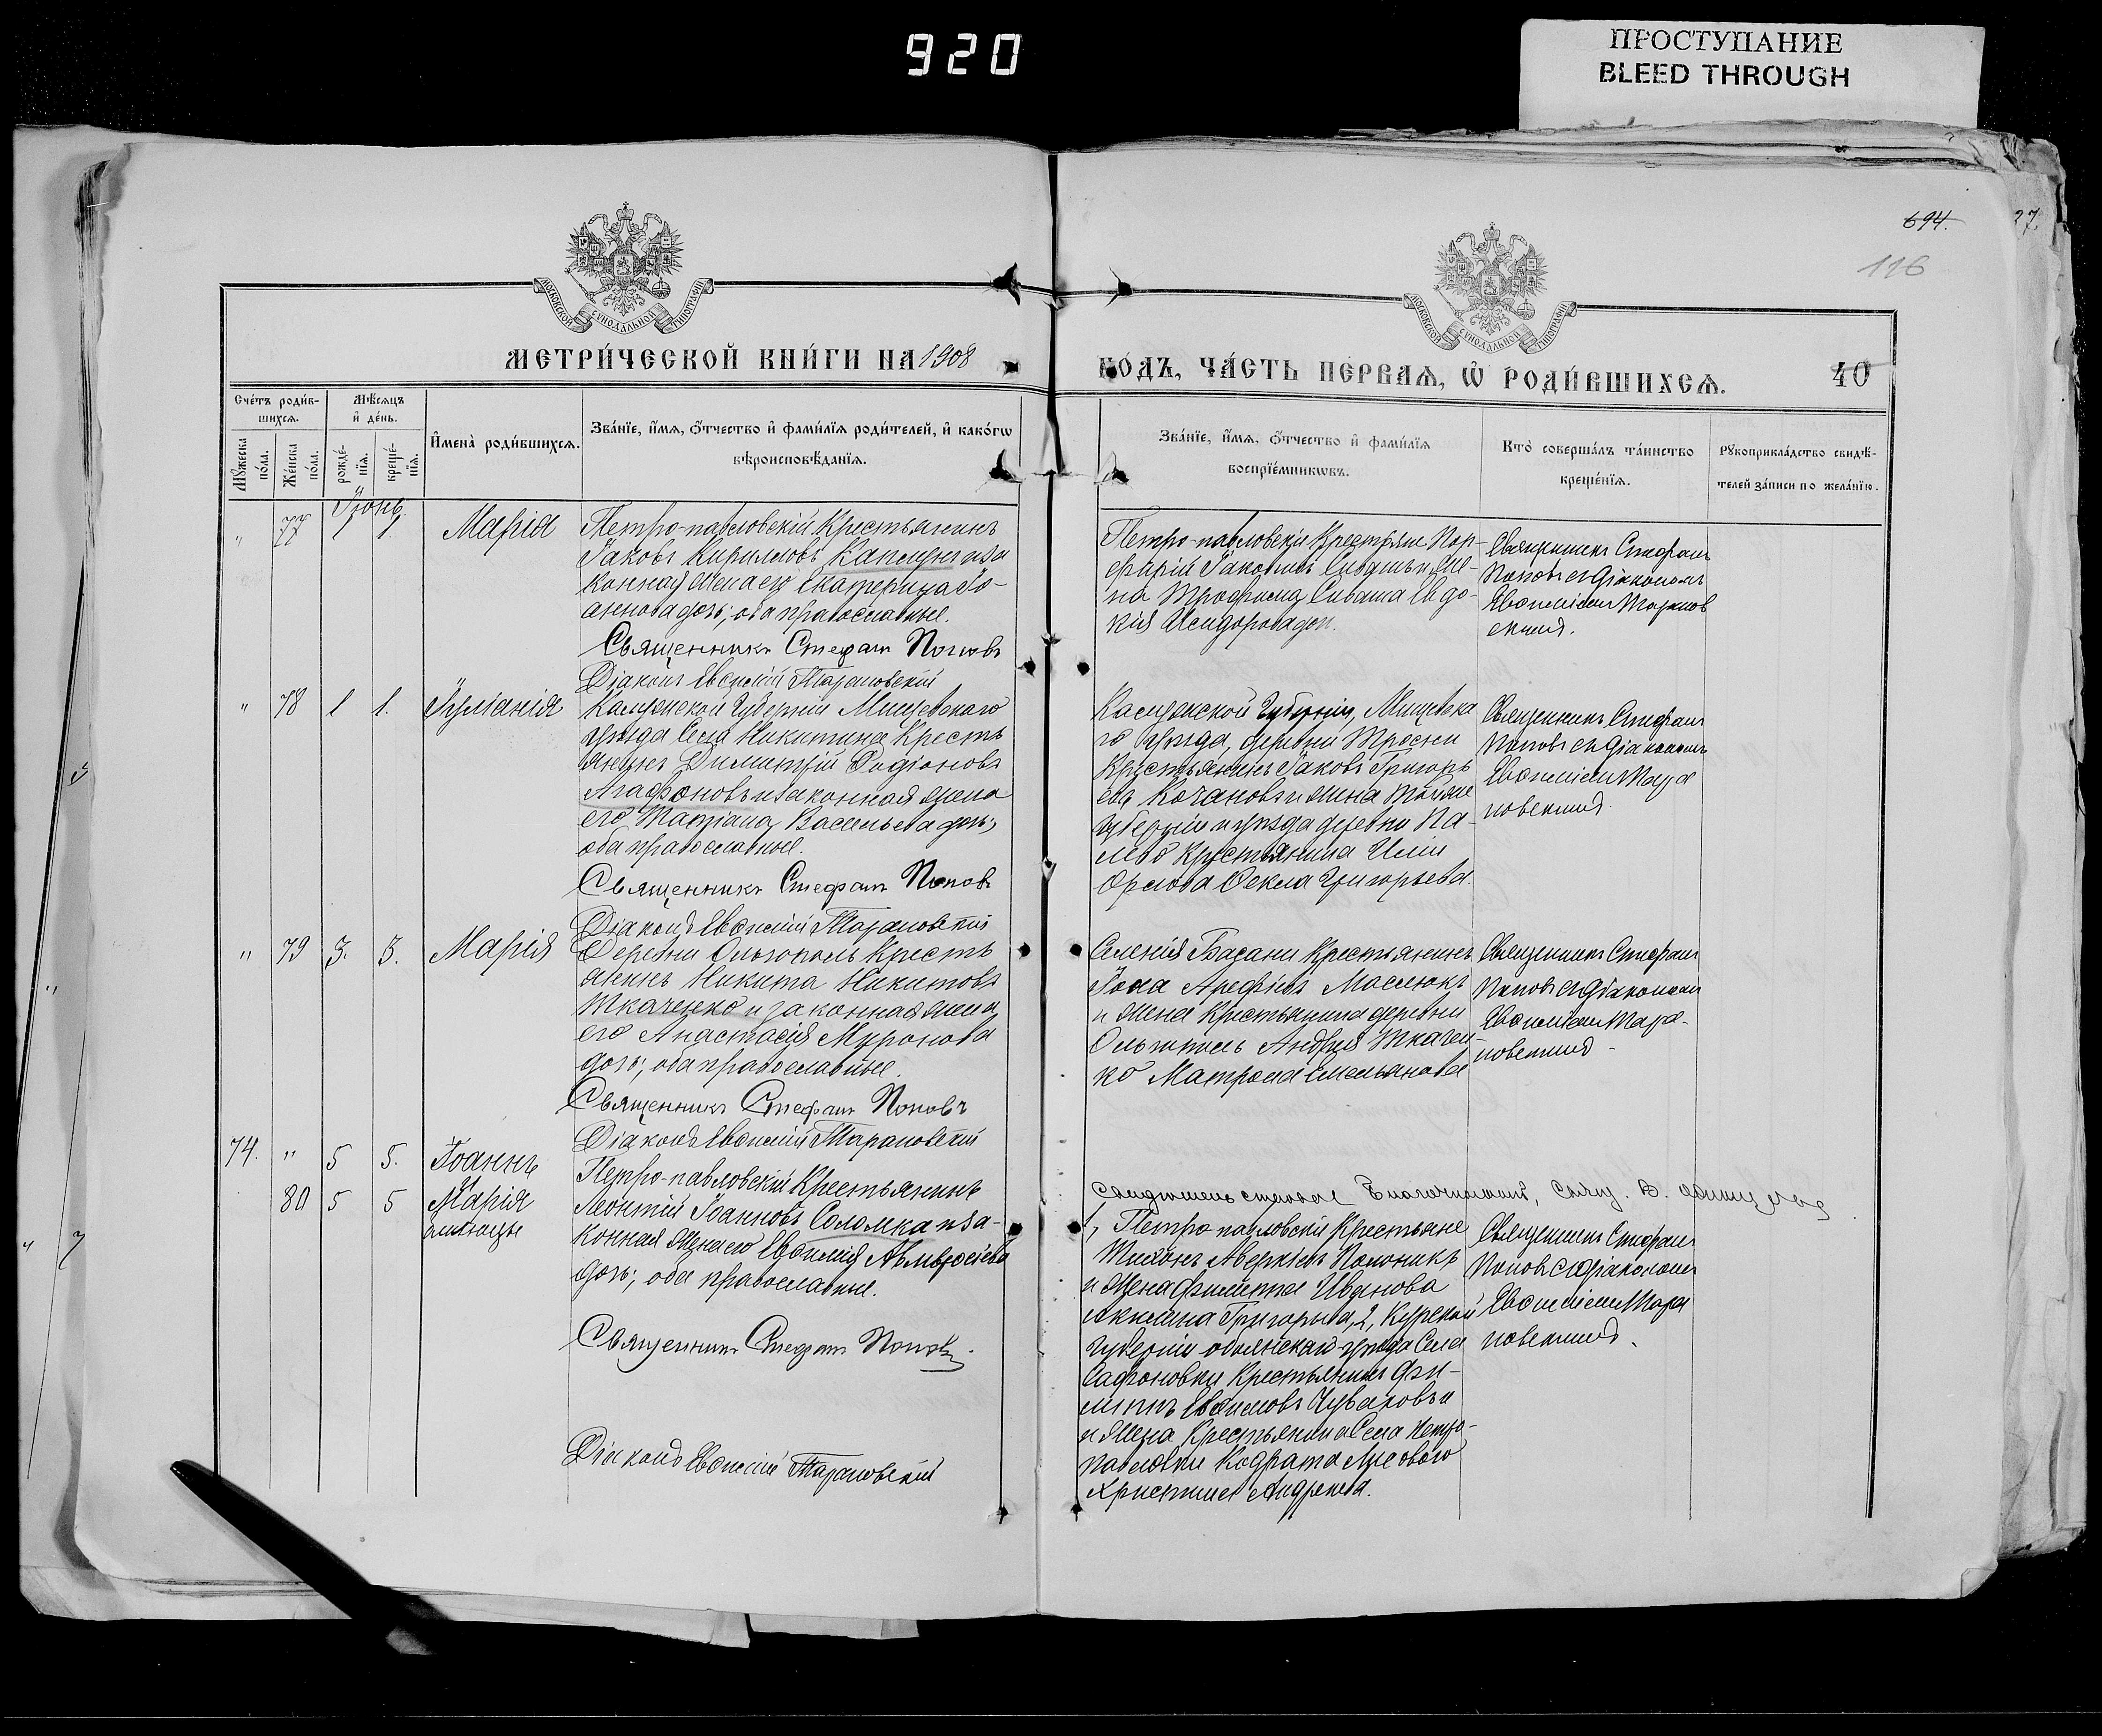 920
ПРОСТУПАНИЕ
BLEED THROUGH
694.
27.
116
МОСКОВСКОЙ СѴНОДАЛЬНОЙ ТИПОГРАФІИ
МОСКОВСКОЙ СѴНОДАЛЬНОЙ ТИПОГРАФІИ
МЕТРИ́ЧЕСКОЙ КНИ́ГИ НА 1908
ГО́ДЪ, ЧА́СТЬ ПЕ́РВАЯ, Ѡ РОДИ́ВШИХСЯ.
40
Сче́тъ роди́в-
шихся.
Мѣ́сяцъ
и҆ де́нь.
Мꙋ́жеска
по́ла.
Же́нска
по́ла.
рожде́-
нїя.
креще́-
нїя.
И҆мена̀ роди́вшихся.
Зва́нїе, и҆́мя, ѻ҆́тчество и҆ фами́лїя роди́телей, и҆ како́гѡ
вѣроисповѣ́данїя.
Зва́нїе, и҆́мя, ѻ҆́тчество и҆ фами́лїя
воспрїе́мникѡвъ.
Кто̀ соверша́лъ та́инство
креще́нїя.
Рꙋкоприкла́дство свидѣ́-
телей за́писи по жела́нїю.
Іюнь.
" 77 1 1. Марія
Петро-павловскій Крестьянинъ
Іаковъ Кирилловъ
конная жена его Екатерина Іо-
аннова дочь; оба православные.
Священникъ Стефанъ Поповъ
Діаконъ Евѳимій Тарановскій
Петро-павловскіе Крестьяне Пор-
фирій Іаковлевъ
на Трофима Сиваша Евдо-
кія Исидорова доч.
Священникъ Стефанъ
Поповъ съ діакономъ
Евѳиміемъ Таранов
скимъ.
" 78 1 1. Іуліанія
Калужской Губерніи Мещовскаго
уѣзда Села Никитина Кресть
янинъ Димитрій Родіоновъ
Агафоновъ и законная жена
его Татіана Васильева дочь;
оба православные.
Священникъ Стефанъ Поповъ
Діаконъ Евѳимій Тарановскій
Калужской Губерніи, Мещовска
го уѣзда, деревни Тросни
Крестьянинъ Іаковъ Григорь
евъ Кочановъ и жена
губерніи и уѣзда деревни Па-
Крестьянина
Орлова Ѳекла Григорьева.
Священникъ Стефанъ
Поповъ съ діакономъ
Евѳиміемъ Тара
новскимъ.
" 79 3. 3. Марія
Деревни Ольгополь Кресть
янинъ Никита Никитовъ
Ткаченко и законная жена
его Анастасія Миронова
дочь; оба православные.
Священникъ Стефанъ Поповъ
Діаконъ Евѳимій Тарановскій
Селенія Басани Крестьянинъ
Іона Арефіевъ Маслюкъ
и жена Крестьянина деревни
Ольгополь Андрея Ткачен-
ко Матрона Емельянова
Священникъ Стефанъ
Поповъ съ діакономъ
Евѳиміемъ Тара-
новскимъ
74. " 5 5. Іоаннъ
80 5 5 Марія
близнецы
Петро-павловскій Крестьянинъ
Леонтій Іоанновъ Соломка и за-
конная жена его Евѳимія Амвросіева
дочь; оба православные.
Священникъ Стефанъ Поповъ.
Діаконъ Евѳимій Тарановскій
Свидѣтельствовалъ Благочинный, Свящ. В.
1, Петро-павловскій Крестьяне
Тихонъ Аверкіевъ
и жена Филиппа Иванова
Григорьева, 2, Курской
Губерніи Обоянскаго уѣзда Села
Сафоновки Крестьянинъ Фи-
липпъ Евѳимовъ Чуваковъ и
и жена Крестьянина Села Петро-
павловки Кодрата Лисоваго
Христина Андреева.
Священникъ Стефанъ
Поповъ съ діакономъ
Евѳиміемъ Тара
новскимъ.